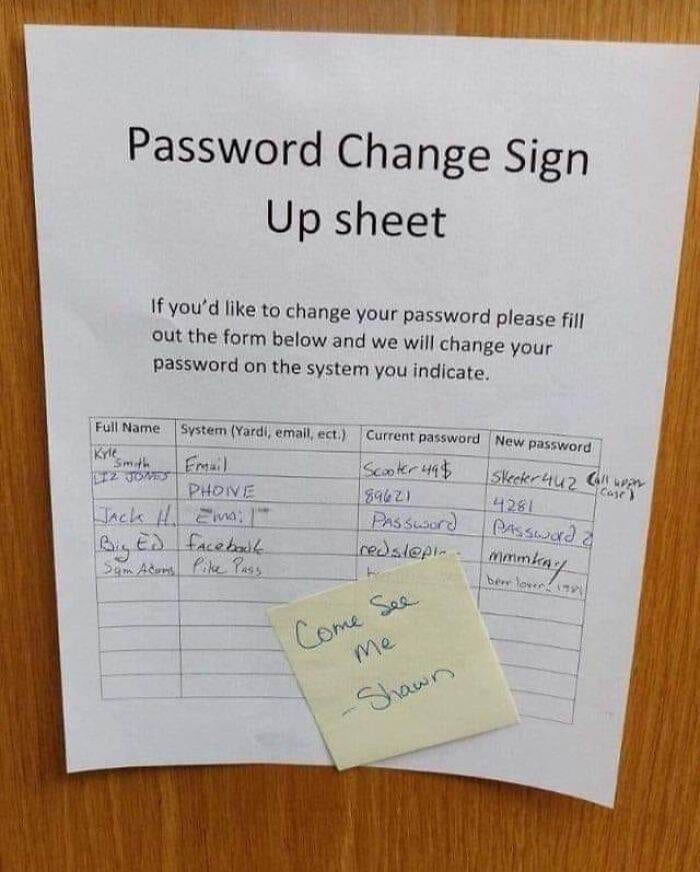 Password Change Sign
Up sheet
If you'd like to change your password please fill
out the form below and we will change your
password on the system you indicate.
Full Name System (Yardi, email, ect.) Current password New password
Kyle Smith Email Scooter49$ Skeeter4U2 (all upper case)
LIZ JONES PHONE 89621 4281
Jack H. Email Password PAssword2
Big Ed facebook mmmkay
Sam Adams Pike Pass beer lover
Come See
me
-Shawn